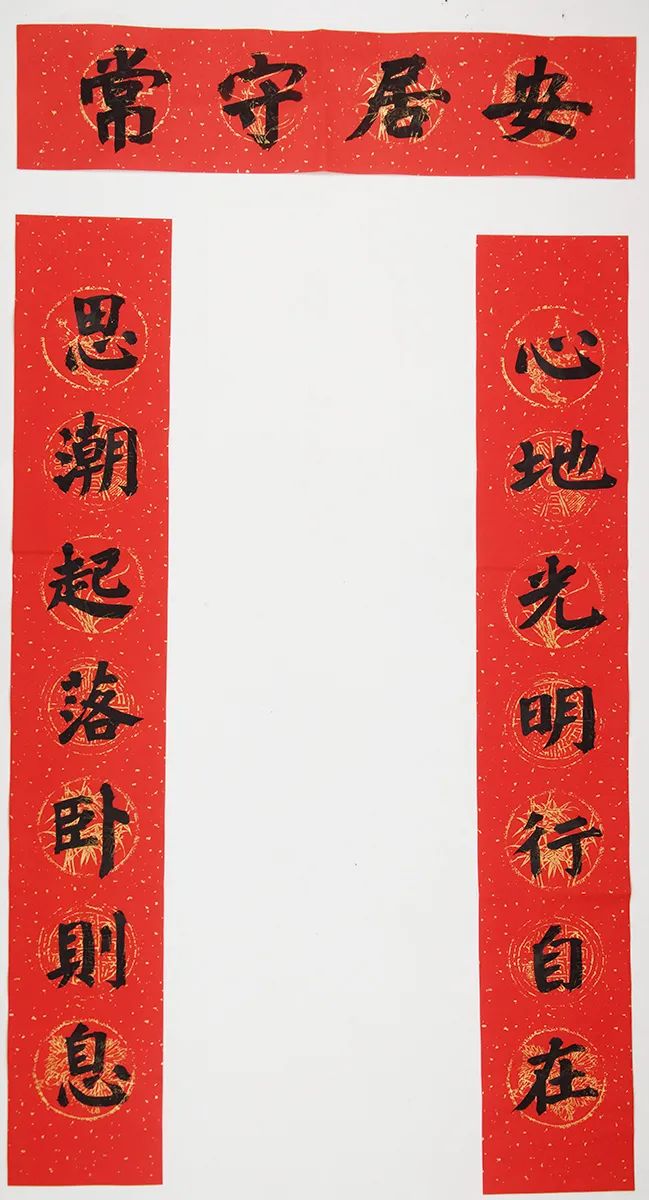 安居守常
心地光明行自在
思潮起落卧則息